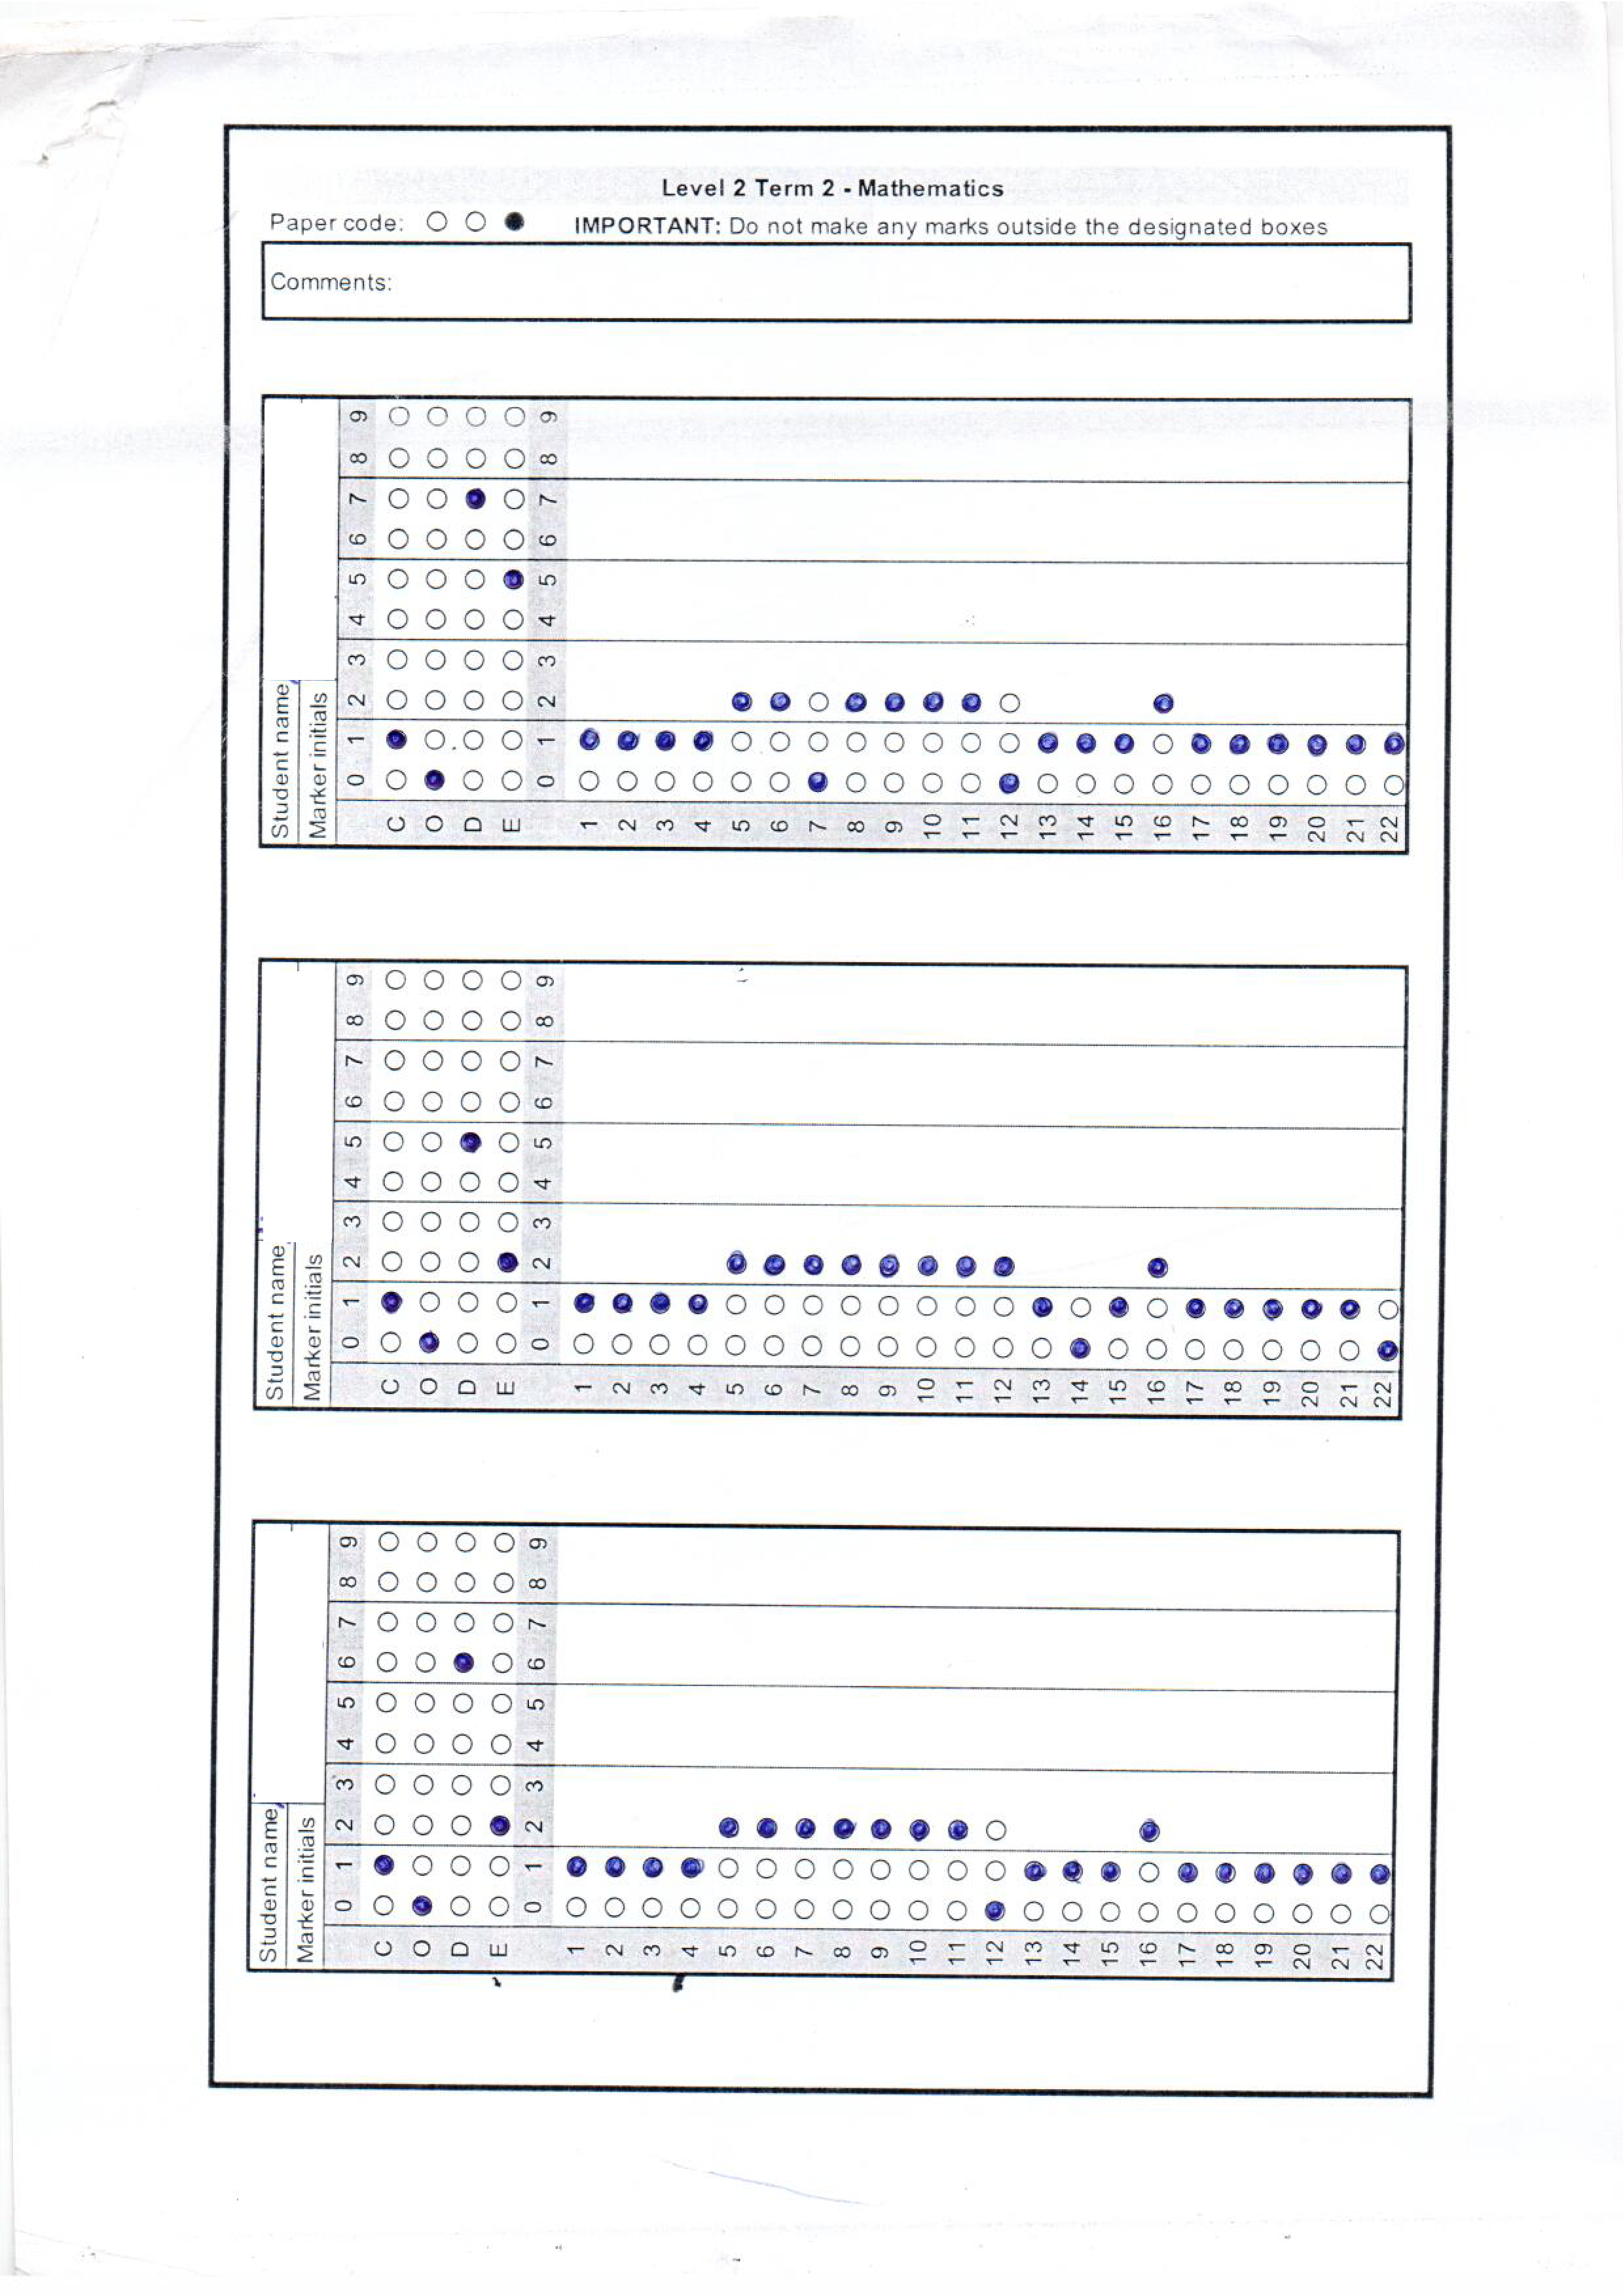 Level 2 Term 2 - Mathematics
Paper code: IMPORTANT: Do not make any marks outside the designated boxes
Comments:
Student name
Marker initials
0 1 2 3 4 5 6 7 8 9
C
O
D
E
0 1 2 3 4 5 6 7 8 9
1
2
3
4
5
6
7
8
9
10
11
12
13
14
15
16
17
18
19
20
21
22
Student name
Marker initials
0 1 2 3 4 5 6 7 8 9
C
O
D
E
0 1 2 3 4 5 6 7 8 9
1
2
3
4
5
6
7
8
9
10
11
12
13
14
15
16
17
18
19
20
21
22
Student name
Marker initials
0 1 2 3 4 5 6 7 8 9
C
O
D
E
0 1 2 3 4 5 6 7 8 9
1
2
3
4
5
6
7
8
9
10
11
12
13
14
15
16
17
18
19
20
21
22